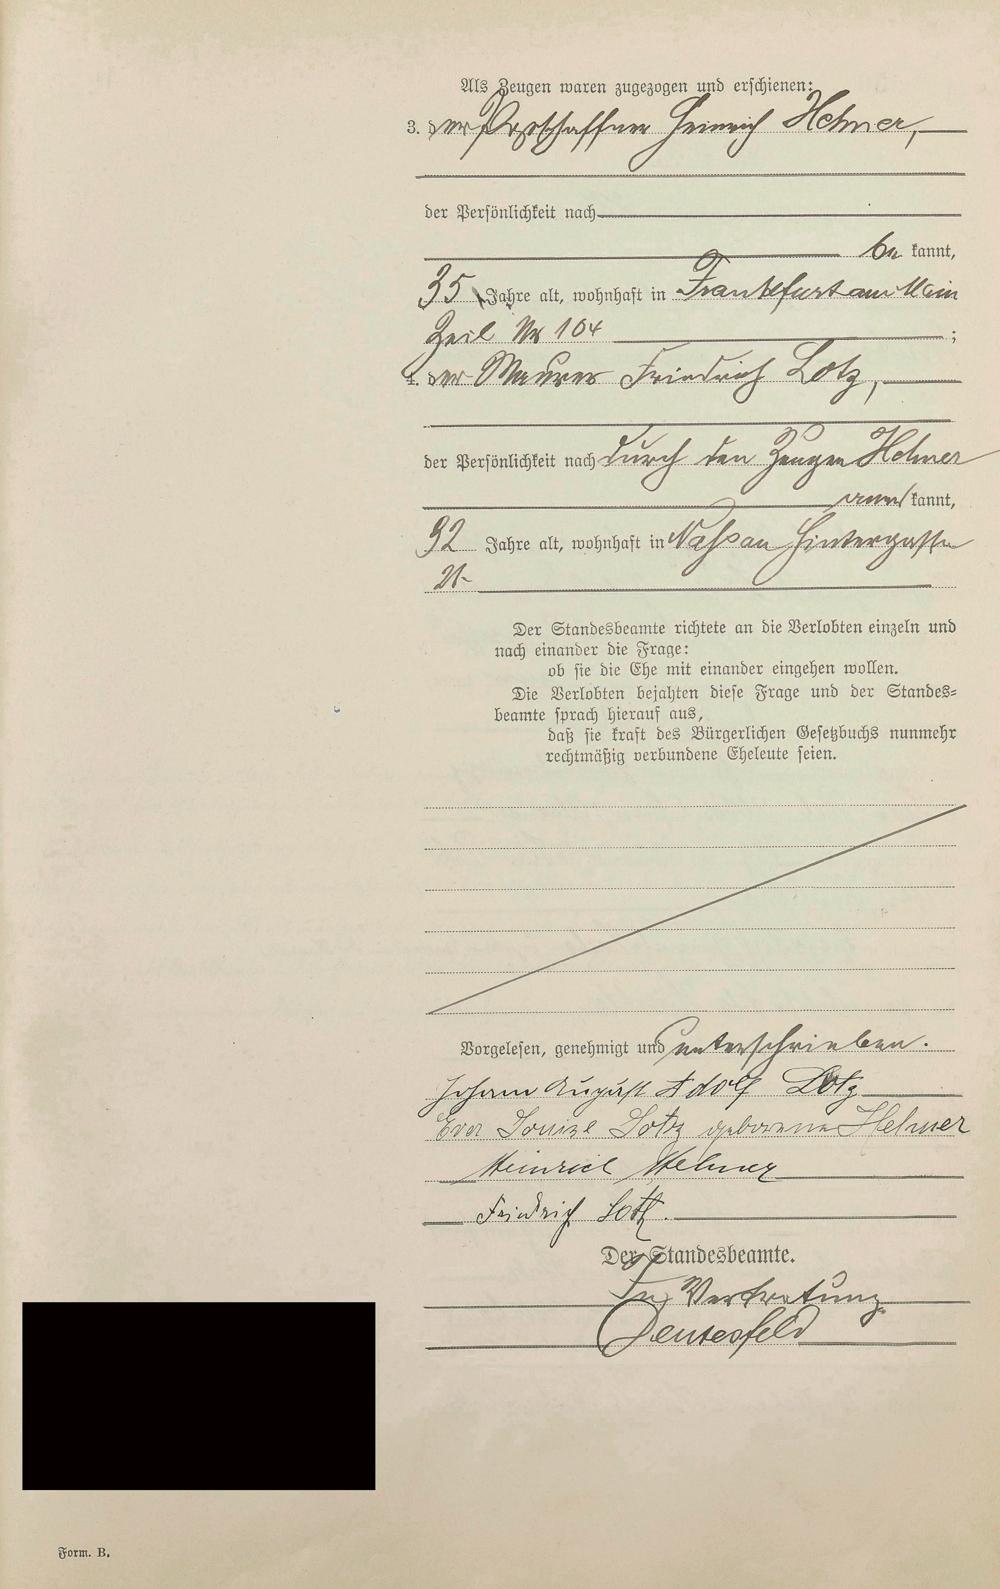 Als Zeugen waren zugezogen und erschienen:
3. der Postschaffner Heinrich Helmer,
der Persönlichkeit nach
be kannt,
35 Jahre alt, wohnhaft in Frankfurt am Main
Zeil Nr 104 ;
4. der Maurer Friedrich Lotz,
der Persönlichkeit nach durch den Zeugen Helmer
aner kannt,
32 Jahre alt, wohnhaft in Nassau Hintergasse
21.
Der Standesbeamte richtete an die Verlobten einzeln und
nach einander die Frage:
ob sie die Ehe mit einander eingehen wollen.
Die Verlobten bejahten diese Frage und der Standes-
beamte sprach hierauf aus,
daß sie kraft des Bürgerlichen Gesetzbuchs nunmehr
rechtmäßig verbundene Eheleute seien.
Vorgelesen, genehmigt und unterschrieben.
Johann August Adolf Lotz
Eva Louise Lotz geborene Helmer
Heinrich Helmer
Friedrich Lotz.
Der Standesbeamte.
In Vertretung
Form. B.